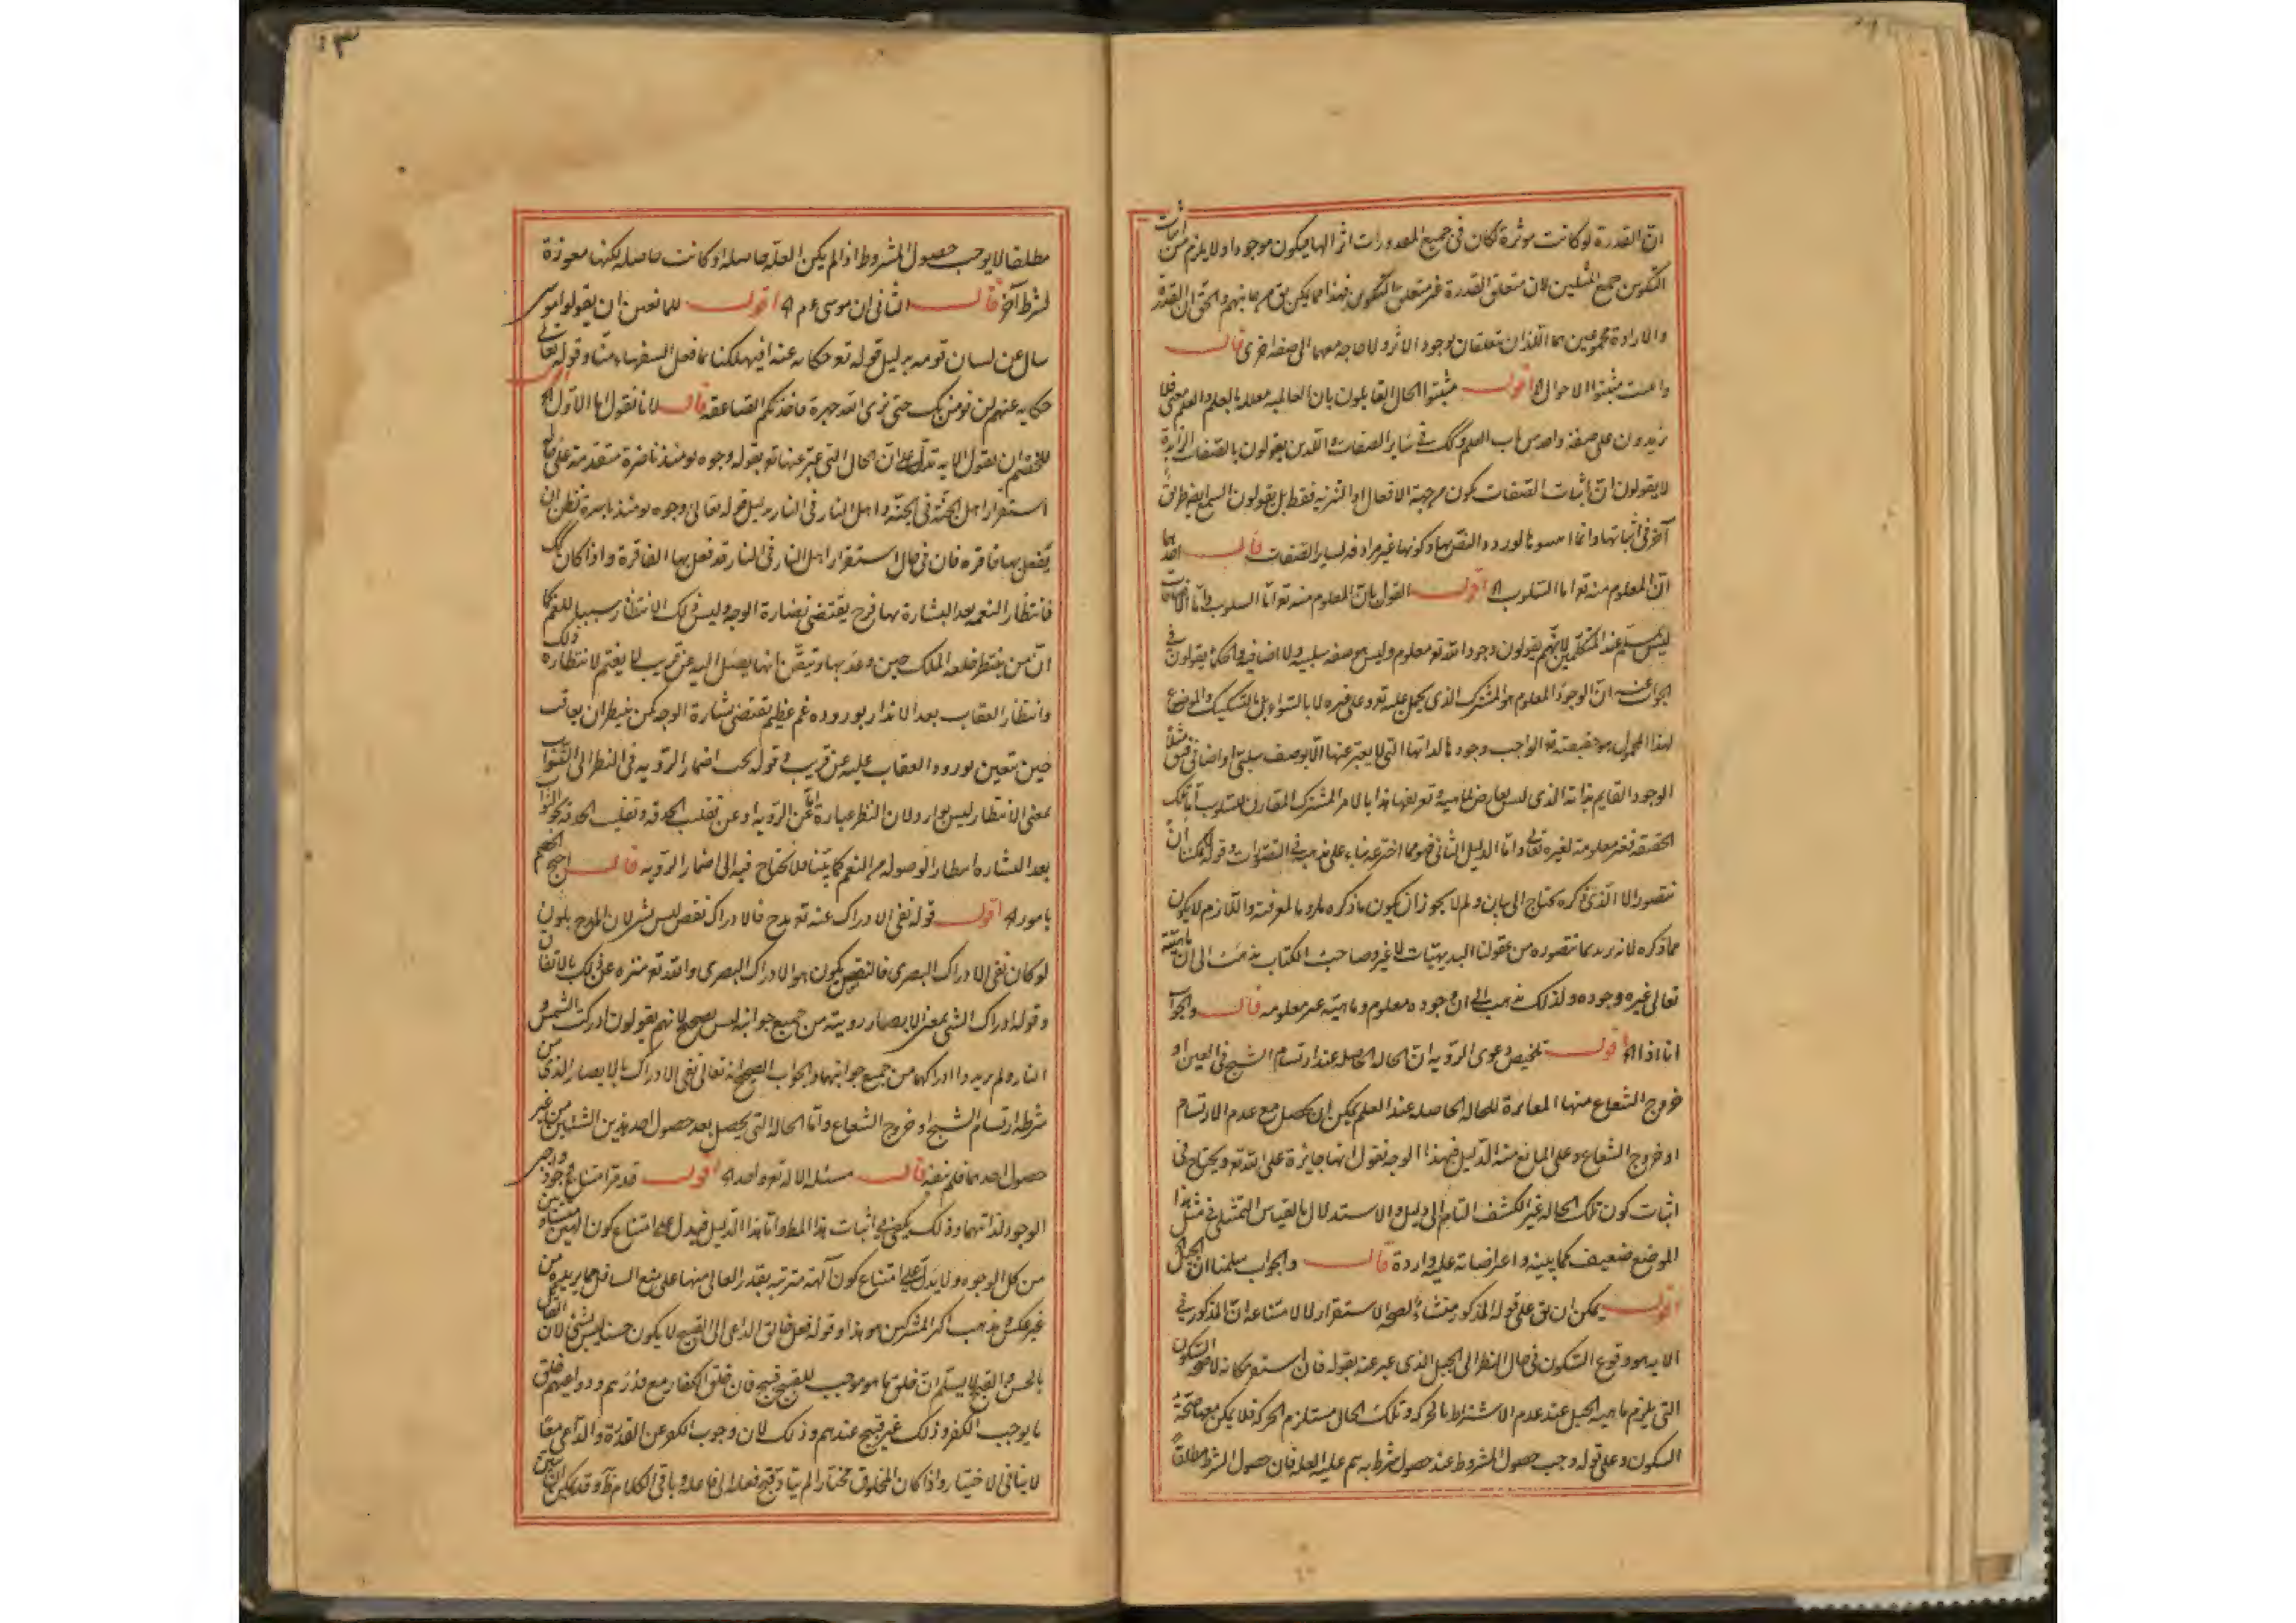 ان القدرة لو كانت موثرة لكان فى جميع المقدورات اثر الها فيكون موجودا ولا يلزم من اثبات
التكوين جمع المثلين لان متعلق القدرة غير متعلق التكوين فهذا ما يمكن ان يق من جانبهم والحق ان القدرة
والارادة مجموعين هما اللذان يتعلقان بوجود الاثر ولا حاجة معهما الى صفة اخرى قال
واعلم مثبتوا الاحوال اه اقول مثبتوا الحال القايلون بان العالمية معللة بالعلم والعلم معنى فلا
يزيدون على صفة واحدة من باب العلم وكك فى ساير الصفات والذين يقولون بالصفات الزايدة
لا يقولون ان اثبات الصفات يكون من جهة الافعال او التنزيه فقط بل يقولون السمع ايضا طريق
آخر فى اثباتها وانما اثبتوها لورود النص بها وكونها غير مرادفة لساير الصفات قال احدهما
ان المعلوم منه تعه اما السلوب اه اقول القول بان المعلوم منه تعه اما السلوب واما الاضافات
ليس بمسلم عند المتكلمين لانهم يقولون وجود الله تعه معلوم وليس هو صفة سلبية ولا اضافية والحكماء يقولون فى
الجواب عنه ان الوجود المعلوم هو المشترك الذى يحمل عليه تعه وعلى غيره لا بالتواء بل بالتشكيك والموضوع
لهذا المحمول هو حقيقته تعه الواجب وجودها لذاتها التى لا يعبر عنها الا بوصف سلبى او اضافى فيق مثلا
الوجود القايم بذاته الذى ليس بعارض لماهية وتعريفها هذا بالامر المشترك المقارن للسلوب اما تلك
الحقيقة فغير معلومة لغيره تعالى واما الدليل الثانى فهو مما اخترعه بناء على مذهبه فى التصورات وقوله لا يمكننا ان
نتصور الا الذى ذكره يحتاج الى بيان ولم لا يجوز ان يكون ما ذكره ملزوما لمعرفته واللازم لا يكون
مما ذكره لانه يريد بما نتصوره من عقولنا البديهيات لا غير وصاحب الكتاب يذهب الى ان ماهيته
تعالى غيره وجوده ولذلك يذهب الى ان وجوده معلوم وماهيته غير معلومة قال والجواب
انا اذا اه اقول تلخيص دعوى الروية ان الحالة الحاصلة عند ارتسام الشبح فى العين او
خروج الشعاع منها المغايرة للحالة الحاصلة عند العلم يمكن ان يحصل مع عدم الارتسام
او خروج الشعاع وعلى المانع منه الدليل فبهذا الوجه نقول انها جايزة على الله تعه ويحتاج فى
اثبات كون تلك الحالة غير الكشف التام الى دليل والاستدلال بالقياس التمثيلى فى مثل هذا
الموضع ضعيف كما بينه واعتراضاته عليه واردة قال والجواب سلمنا ان الجبل
اقول يمكن ان يق على قوله المذكور منشاء لصحة الاستقرار لا لامتناعه ان المذكور فى
الاية هو وقوع السكون فى حال النظر الى الجبل الذى عبر عنه بقوله فان استقر مكانه لا صحة السكون
التى يلزم ماهية الجبل عند عدم الاشتراط بالحركة وتلك الحال مستلزم الحركة فلا يمكن معها صحة
السكون وعلى قوله وجب حصول المشروط عند حصول شرط به يتم علية العلة فان حصول الشرط مطلقا
مطلقا لا يوجب حصول المشروط اذا لم يكن العلة حاصلة او كانت حاصلة لكنها معوزة
لشرط آخر قال الثانى ان موسى عم اه اقول للمانعين ان يقولوا موسى
سال عن لسان قومه بدليل قوله تعه حكاية عنه افيهلكنا بما فعل السفهاء منا وقوله تعالى
حكاية عنهم لن نومن لك حتى نرى الله جهرة فاخذتكم الصاعقة قال لانا نقول اما الاول اه اقول
للخصم ان يقول الاية تدل على ان الحال التى عبر عنها تعه بقوله وجوه يومئذ ناضرة متقدمة على حال
استقرار اهل الجنة فى الجنة واهل النار فى النار بدليل قوله تعالى وجوه يومئذ باسرة تظن ان
يفعل بها فاقرة فان فى حال استقرار اهل النار فى النار قد فعل بها الفاقرة واذا كان كك
فانتظار النعمة بعد البشارة بها فرح يقتضى نضارة الوجه وليس ذلك الانتظار سببا للغم كما
ان من ينتظر خلعة الملك حين وعد بها وتيقن انها يصل اليه عن قريب لا يغتم لانتظاره ذلك
وانتظار العقاب بعد الانذار بوروده غم عظيم يقتضى بسارة الوجه كمن ينتظر ان يعاقب
حين تيقن بورود العقاب عليه عن قريب وقوله يجب اضمار الروية فى النظر الى الثواب
بمعنى الانتظار ليس بوارد لان النظر عبارة اما عن الروية او عن تقليب الحدقة وتقليب الحدقة نحو الثواب
بعد البشارة انتظار الوصوله من النعم كما بينا فلا يحتاج فيه الى اضمار الروية قال احتج الخصم
بامور اه اقول قوله نفى الادراك عنه تعه مدح فالادراك نقص ليس بشئ لان المدح يكون
لو كان نفى الادراك البصرى فالنقص يكون هو الادراك البصرى والله تعه منزه عن ذلك بالاتفاق
وقوله ادراك الشئ بمعنى الابصار رويته من جميع جوانبه ليس بصحيح لانهم يقولون ادركت الشمس و
النار ولم يريدوا ادراكها من جميع جوانبها والجواب الصحيح انه تعالى نفى الادراك بالابصار الذى من
شرطه ارتسام الشبح او خروج الشعاع واما الحالة التى يحصل بعد حصول احد هذين الشيئين من غير
حصول احدهما فلم ينفه قال مسئلة الاله تعه واحد اه اقول قد مر امتناع وجود واجبى
الوجود لذاتهما وذلك يكفى فى اثبات هذا المط واما هذا الدليل فيدل على امتناع كون الهين متساويين
من كل الوجوه ولا يدل على امتناع كون آلهة مترتبة يقدر العالى منها على منع السافل مما يريده من
غير عكس ومذهب اكثر المشركين هو هذا وقوله فعل خالق الداعى الى القبيح لا يكون حسنا ليس بشئ لان القايل
بالحسن والقبح لا يسلم ان خلق ما هو موجب للقبيح قبيح فان خلق الكفار مع قدرهم ودواعيهم خلق
ما يوجب الكفر وذلك غير قبيح عندهم وذلك لان وجوب الكفر عن القدرة والداعى معا
لا ينافى الاختيار واذا كان المخلوق مختارا لم يتأد قبح فعله الى فاعله وباقى الكلام ظاهر وقد يمكن